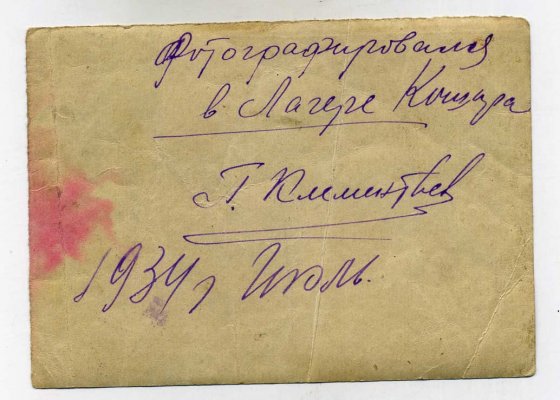 Фотографировался
в Лагере Кошара
Г. Клементьев
1934 г Июль.